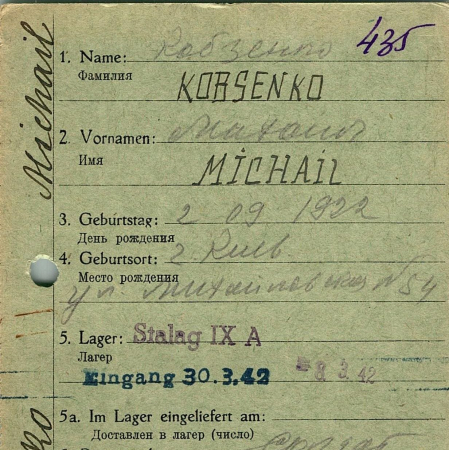 435
Michail
1. Name: Кобзенко
Фамилия
KOBSENKO
2. Vornamen: Михаил
Имя
MICHAIL
3. Geburtstag: 2 09 1922
День рождения
4. Geburtsort: г Киев
Место рождения
ул. Михайловская № 54
5. Lager: Stalag IX A
Лагерь
Eingang 30.3.42 8 3. 42
5a. Im Lager eingeliefert am:
Доставлен в лагерь (число)